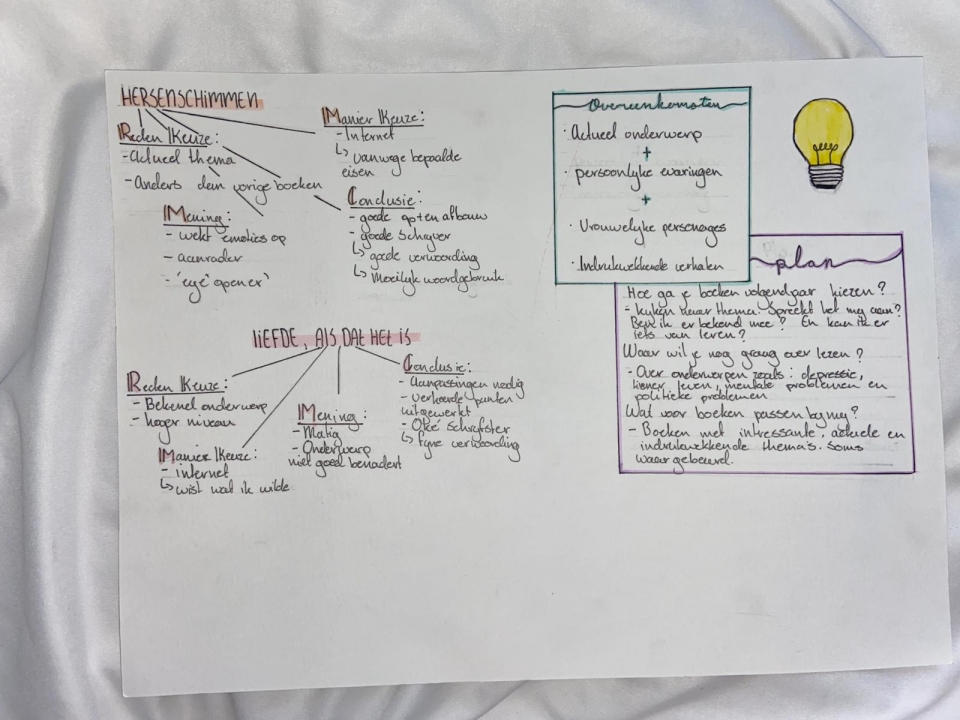 HERSENSCHIMMEN
Reden Keuze:
- Actueel thema
- Anders dan vorige boeken
Manier Keuze:
- Internet
↳ vanwege bepaalde
eisen
Mening:
- wekt emoties op
- aanrader
- 'eye' opener
Conclusie:
- goede opten afbouw
- goede schrijver
↳ goede verwoording
↳ Moeilijk woordgebruik
LIEFDE, ALS DAT HET IS
Reden Keuze:
- Bekend onderwerp
- hoger niveau
Manier Keuze:
- internet
↳ wist wat ik wilde
Mening:
- Matig
- Onderwerp
niet goed benadert
Conclusie:
- Aanpassingen nodig
- verkeerde punten
uitgewerkt
- Oké schrijfster
↳ fijne verwoording
Overeenkomsten
· Actueel onderwerp
+
· persoonlijke ervaringen
+
· Vrouwelijke personages
· Indrukwekkende verhalen
plan
Hoe ga je boeken volgend jaar kiezen?
- kijken naar thema. Spreekt het mij aan?
Ben ik er bekend mee? En kan ik er
iets van leren?
Waar wil je nog graag over lezen?
- Over onderwerpen zoals: depressie,
tiener leven, mentale problemen en
politieke problemen
Wat voor boeken passen bij mij?
- Boeken met intressante, actuele en
indrukwekkende thema's. Soms
waargebeurd.